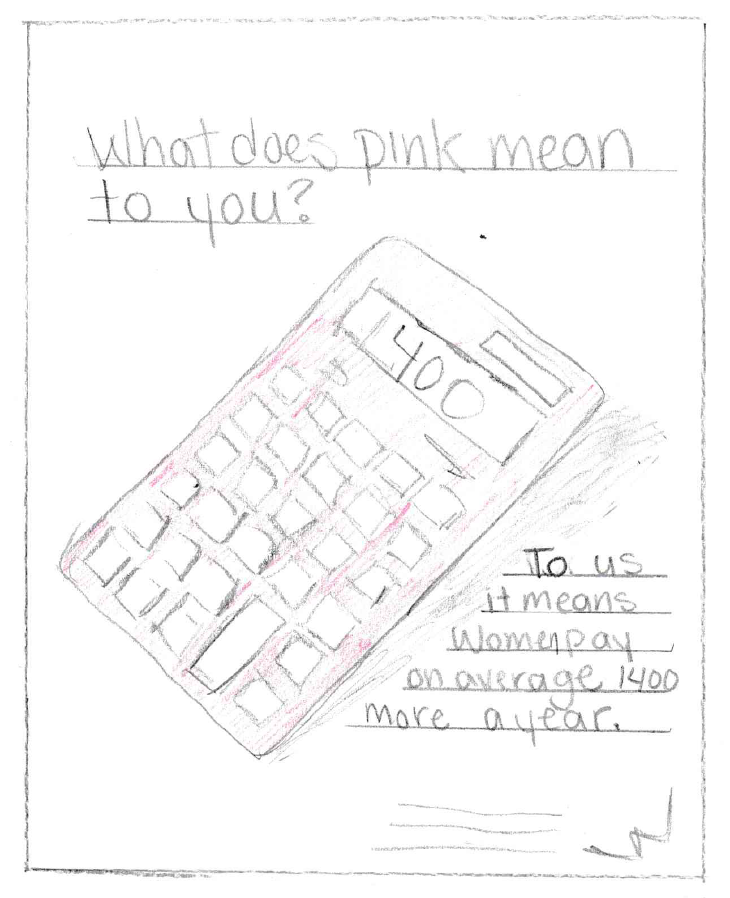 What does pink mean
to you?
1400
To us
it means
Women pay
on average 1400
more a year.